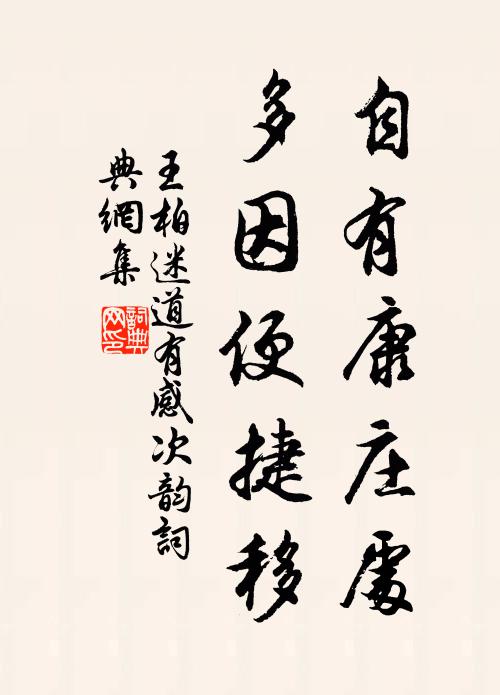 自有康庄處
多因便捷移
王柏迷道有感次韵詞
典網集
詞典网印